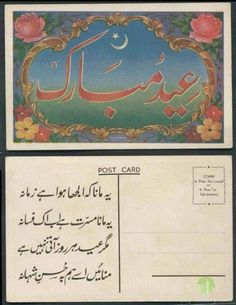 عید مبارک
POST CARD
STAMP
یہ مانا کہ الجھا ہوا ہے زمانہ
یہ مانا مسرت ہے اک فسانہ
مگر عید ہر روز آتی نہیں ہے
منائیں اسے ہم بہ حسن شہانہ